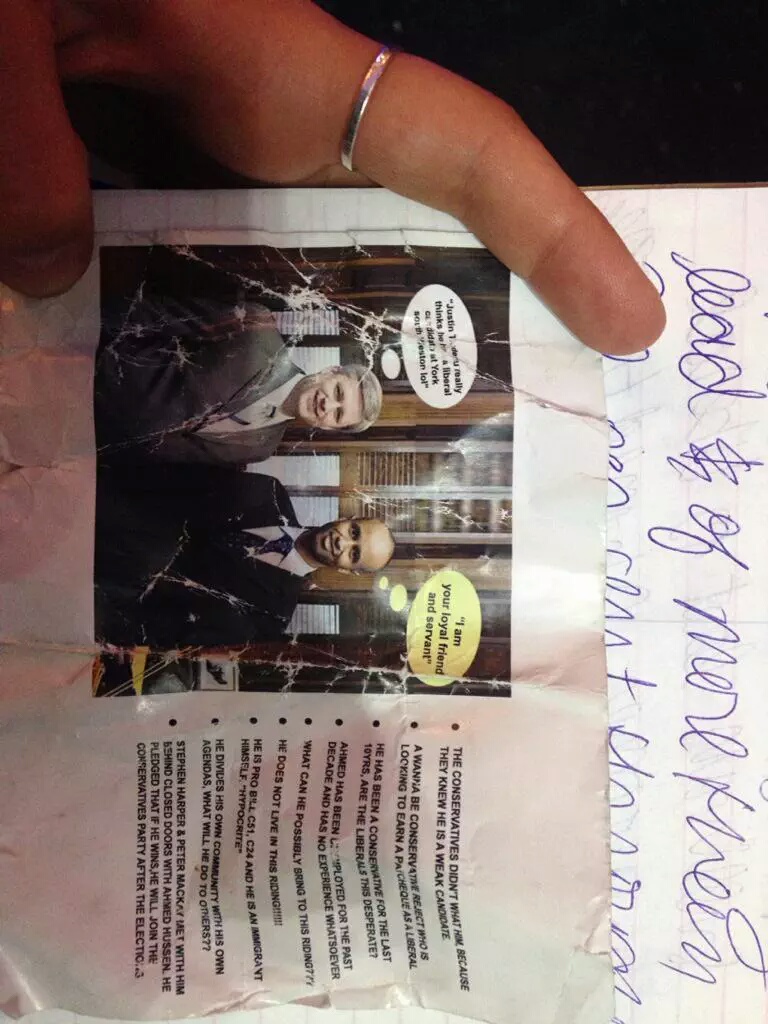 "Justin Trudeau really
thinks he is a liberal
candidate at York
south Weston lol"
"I am
your loyal friend
and servant"
• THE CONSERVATIVES DIDN'T WHAT HIM, BECAUSE
THEY KNEW HE IS A WEAK CANDIDATE.
• A WANNA BE CONSERVATIVE REJECT WHO IS
LOOKING TO EARN A PAYCHEQUE AS A LIBERAL
• HE HAS BEEN A CONSERVATIVE FOR THE LAST
10YRS, ARE THE LIBERALS THIS DESPERATE?
• AHMED HAS BEEN UNEMPLOYED FOR THE PAST
DECADE AND HAS NO EXPERIENCE WHATSOEVER
• WHAT CAN HE POSSIBLY BRING TO THIS RIDING???
• HE DOES NOT LIVE IN THIS RIDING!!!!!!
• HE IS PRO BILL C51, C24 AND HE IS AN IMMIGRANT
HIMSELF. "HYPOCRITE"
• HE DIVIDES HIS OWN COMMUNITY WITH HIS OWN
AGENDAS, WHAT WILL HE DO TO OTHERS??
• STEPHEN HARPER & PETER MACKAY MET WITH HIM
BEHIND CLOSED DOORS WITH AHMED HUSSEN. HE
PLEDGED THAT IF HE WINS,HE WILL JOIN THE
CONSERVATIVES PARTY AFTER THE ELECTIONS
of more